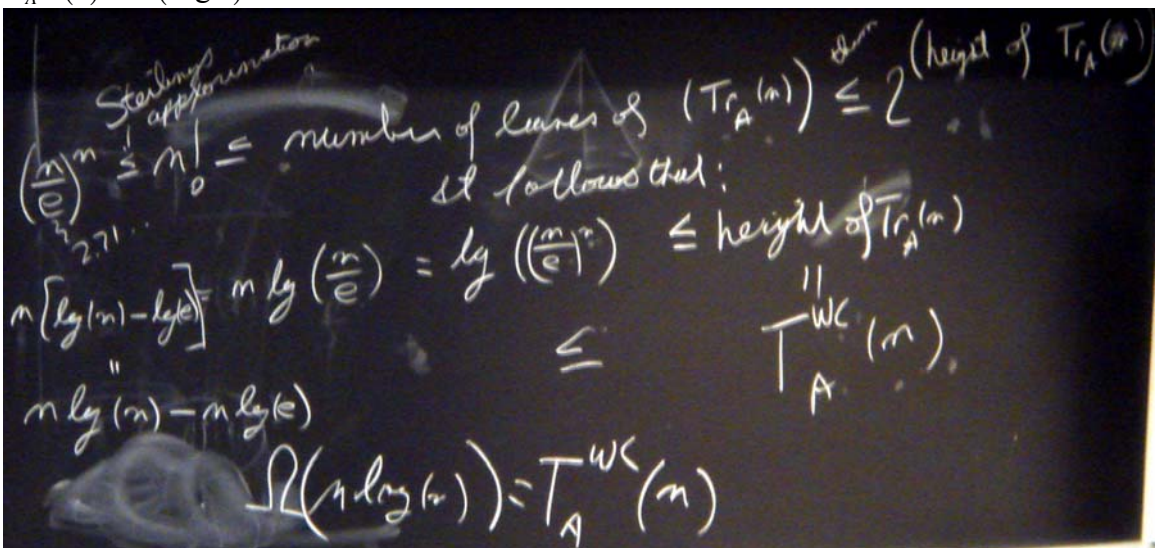 Sterlings
approximation
(n/e)^n ≤ n! ≤ number of leaves of (Tr_A(n)) ≤ 2^(height of Tr_A(n))
2.71...
it follows that:
n[lg(n)-lg(e)] = n lg(n/e) = lg((n/e)^n) ≤ height of Tr_A(n)
"
||
≤ T_A^WC(n).
n lg(n) - n lg(e)
Ω(n log(n)) = T_A^WC(n)